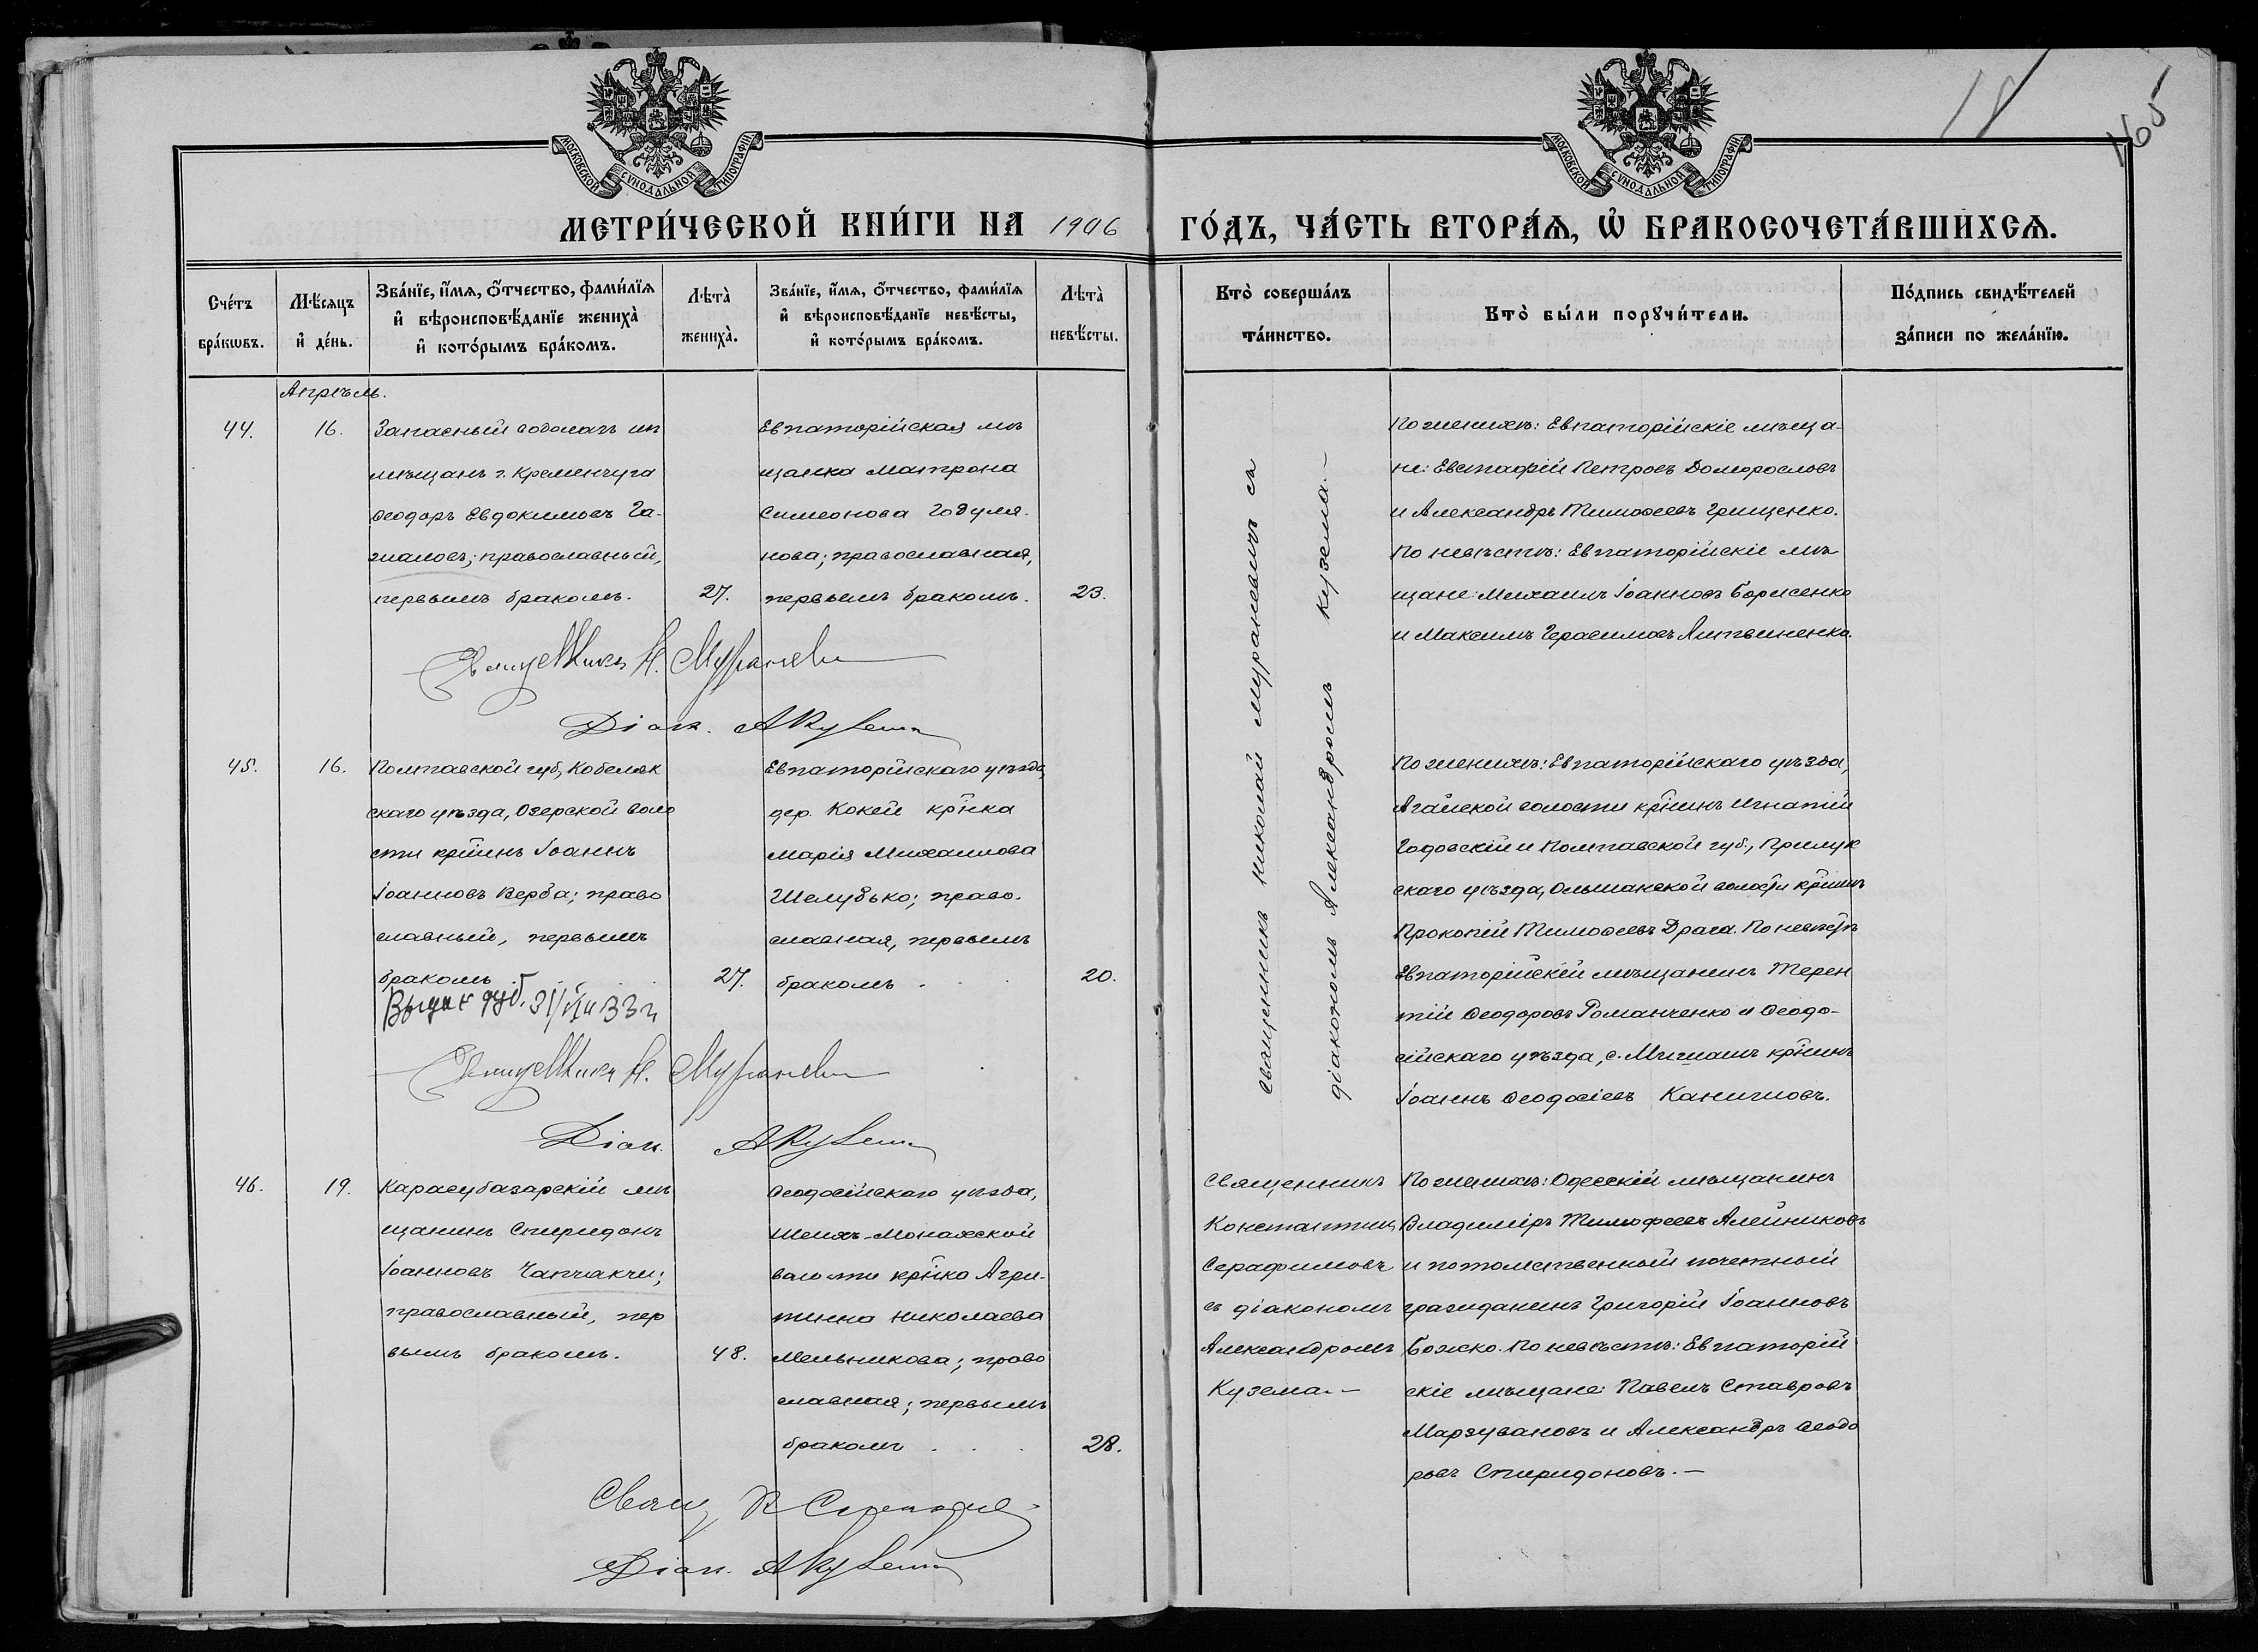 18
165
МОСКОВСКОЙ СѴНОДАЛЬНОЙ ТИПОГРАФІИ
МОСКОВСКОЙ СѴНОДАЛЬНОЙ ТИПОГРАФІИ
МЕТРИ́ЧЕСКОЙ КНИ́ГИ НА 1906 ГО́ДЪ, ЧА́СТЬ ВТОРА́Ѧ, Ѽ БРАКОСОЧЕТА́ВШИХСѦ.
Сче́тъ
бра́кѡвъ.
Мѣ́сяцъ
и҆ де́нь.
Зва́нїе, и҆́мѧ, ѻ҆́тчество, фами́лїѧ
и҆ вѣроисповѣ́данїе жениха̀
и҆ кото́рымъ бра́комъ.
Лѣта̀
жениха̀.
Зва́нїе, и҆́мѧ, ѻ҆́тчество, фами́лїѧ
и҆ вѣроисповѣ́данїе невѣ́сты,
и҆ кото́рымъ бра́комъ.
Лѣта̀
невѣ́сты.
Кто̀ соверша́лъ
та́инство.
Кто̀ бы́ли порꙋчи́тели.
По́дпись свидѣ́телей
за́писи по жела́нїю.
Апрѣль.
44.
16.
Запасный
мѣщанъ г. Кременчуга
Ѳеодоръ Евдокимовъ Га-
маловъ; православный,
первымъ бракомъ.
27.
Евпаторійская мѣ
щанка Матрона
Симеонова Годуля-
нова; православная,
первымъ бракомъ.
23.
Священникъ Николай Мураневичъ съ
діакономъ Александромъ Кузема.—
По женихѣ: Евпаторійскіе мѣща-
не: Евстафій Петровъ Доморословъ
и Александръ Тимоѳеевъ Грищенко.
По невѣстѣ: Евпаторійскіе мѣ
щане: Михаилъ Іоанновъ Борисенко
и Максимъ Герасимовъ Литвиненко.
Священникъ Н. Мураневичъ
Діак. А Кузема
45.
16.
Полтавской губ., Кобеляк
скаго уѣзда, Озерской воло
сти кр̃нинъ Іоаннъ
Іоанновъ Верба; право
славный, первымъ
бракомъ
27.
31/VIII 33 г
Евпаторійскаго уѣзда,
дер. Кокей кр̃нка
Марія Михаилова
Шелудько; право-
славная, первымъ
бракомъ . . .
20.
По женихѣ: Евпаторійскаго уѣзда,
Агайской волости кр̃нинъ Игнатій
Годовскій и Полтавской губ., Прилук
скаго уѣзда, Ольшанской волости кр̃нинъ
Прокопій Тимоѳеевъ Драга. По невѣстѣ
Евпаторійскій мѣщанинъ Терен
тій Ѳеодоровъ Романченко и Ѳеодо-
сійскаго уѣзда, с. кр̃нинъ
Іоаннъ Ѳеодосіевъ
Священникъ Н. Мураневичъ
Діак. А Кузема
46.
19.
Карасубазарскій мѣ
щанинъ Спиридонъ
Іоанновъ Чапчакчи;
православный, пер
вымъ бракомъ.
48.
Ѳеодосійскаго уѣзда,
Шейхъ-Монахской
волости кр̃нка Агри-
пинна Николаева
Мельникова; право
славная; первымъ
бракомъ . . .
28.
Священникъ
Константинъ
Серафимовъ
съ діакономъ
Александромъ
Кузема.—
По женихѣ: Одесскій мѣщанинъ
Владиміръ Тимоѳеевъ Алейниковъ
и потомственный почетный
гражданинъ Григорій Іоанновъ
Божко. По невѣстѣ: Евпаторій
скіе мѣщане: Павелъ Ставровъ
Марзувановъ и Александръ Ѳеодо
ровъ Спиридоновъ.—
Свящ. К
Діак. А Кузема